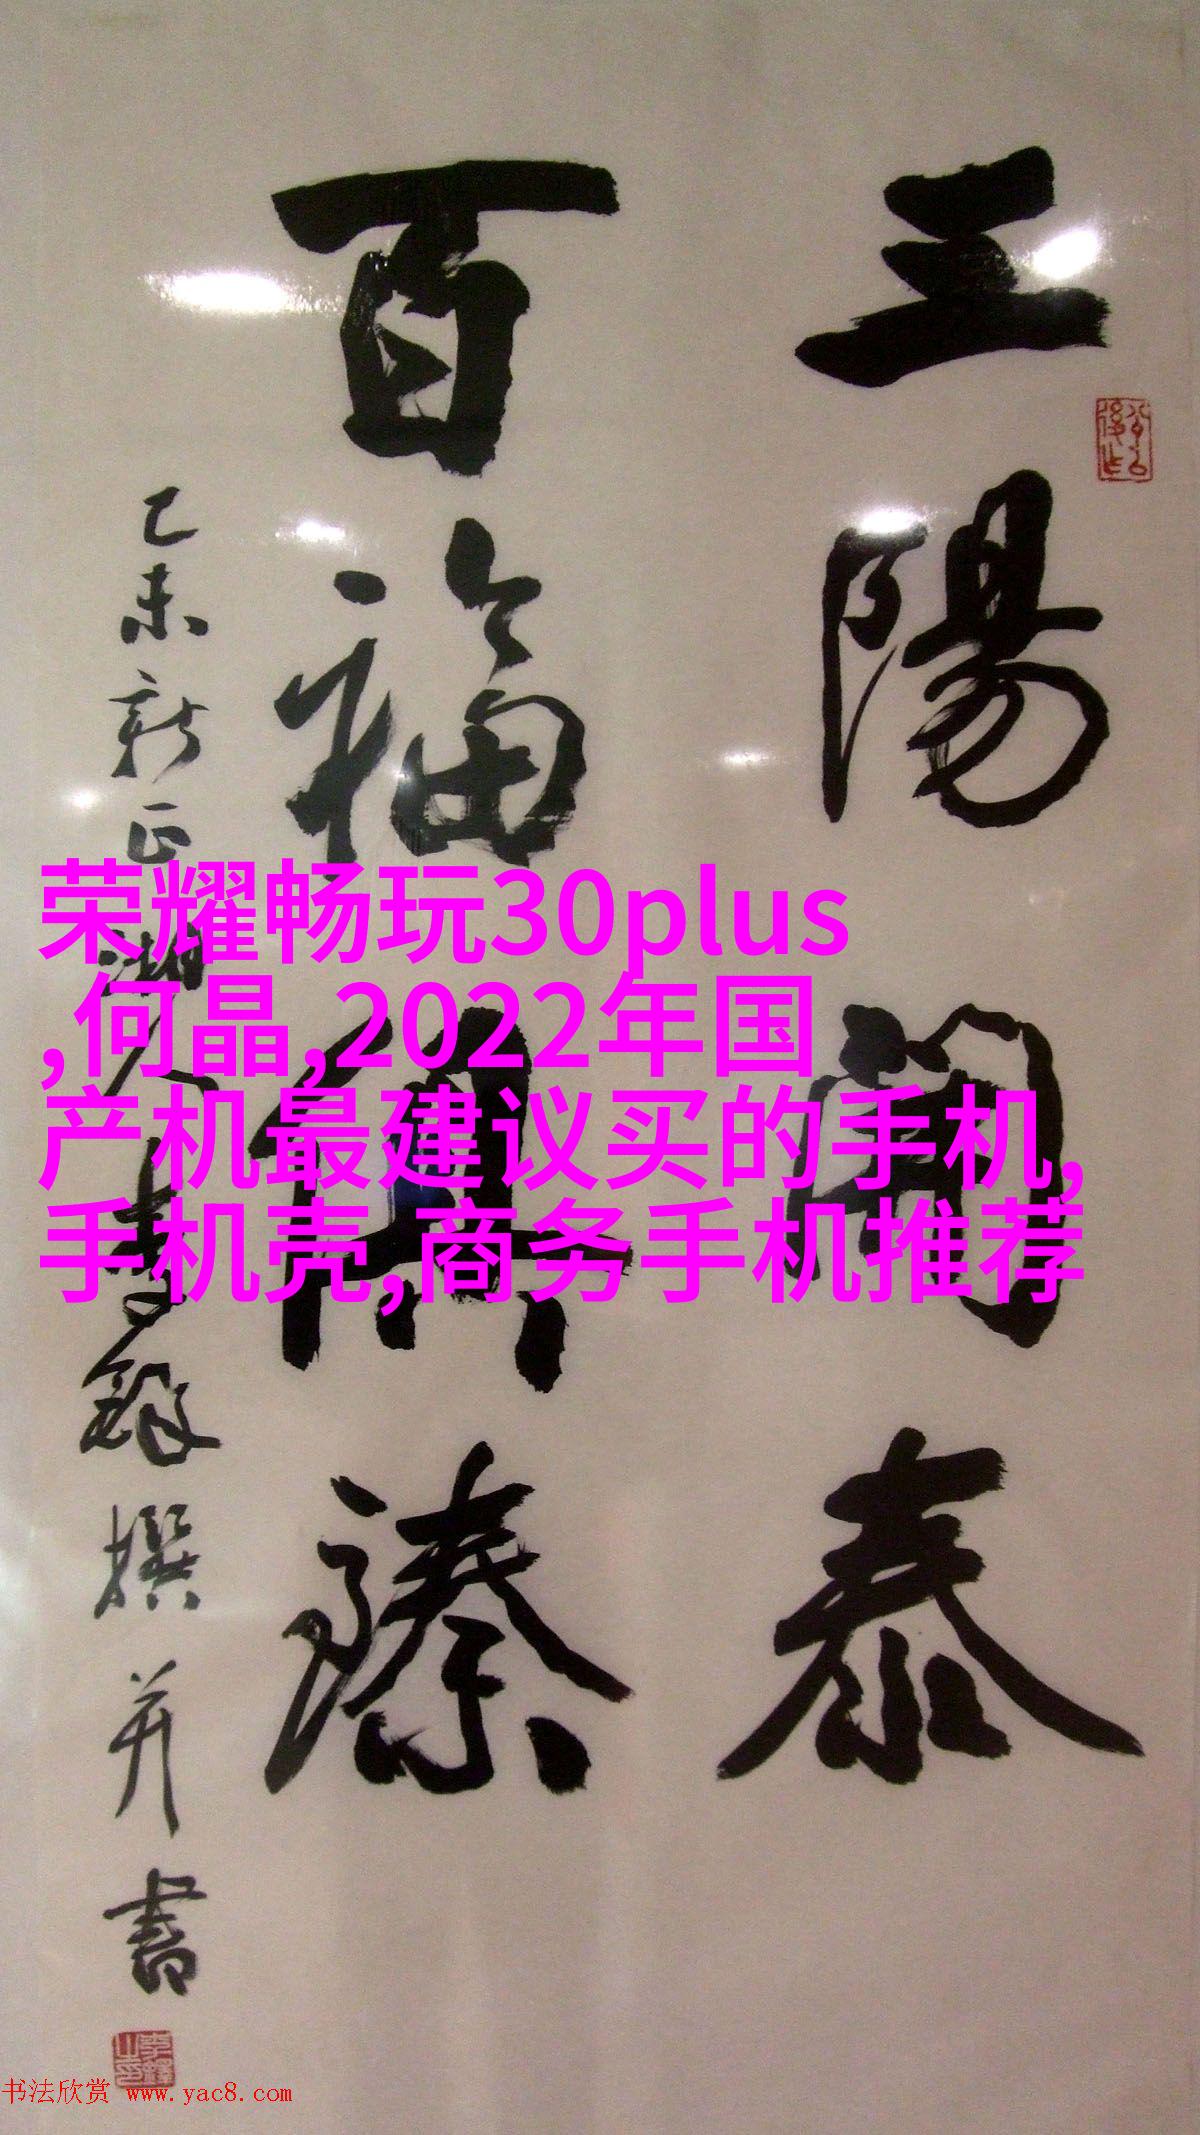 三陽開泰
百福俱臻
乙未新正湖人李鐸撰并書
荣耀畅玩30plus
,何晶,2022年国
产机最建议买的手机,
手机壳,商务手机推荐
书法欣赏 www.yac8.com